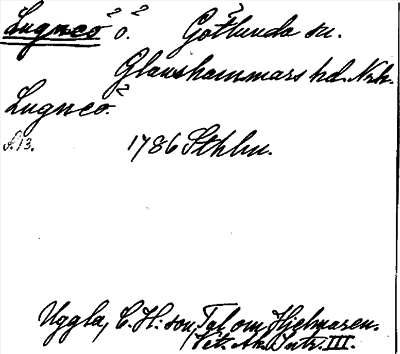 Lugneö² ö.² Götlunda sn.
Glanshammars hd. Nrk.
Lugneö.²
s. 13. 1786 Sthlm.
Uggla, C. H:son, Tal om Hjelmaren.
Vet. Ak. Intr. III.